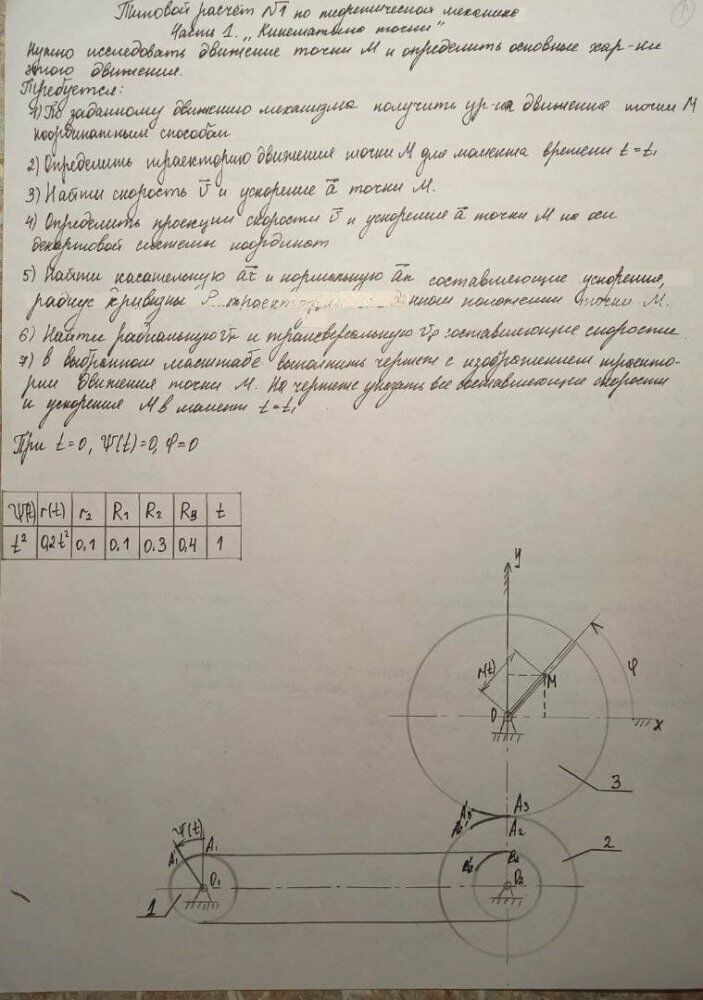 Типовой расчёт №1 по теоретической механике
Часть 1. „Кинематика точки"
Нужно исследовать движение точки М и определить основные хар-ки
этого движения.
Требуется:
1) По заданному движению механизма получить ур-ия движения точки М
координатным способом
2) Определить траекторию движения точки М для момента времени t=t₁
3) Найти скорость v̄ и ускорение ā точки М.
4) Определить проекции скорости v̄ и ускорения ā точки М на оси
декартовой системы координат
5) Найти касательную āτ и нормальную ān составляющие ускорения,
радиус кривизны ρ положении точки М.
6) Найти радиальную vr и трансверсальную vp составляющие скорости.
7) В выбранном масштабе выполнить чертеж с изображением траекто-
рии движения точки М. На чертеже указать все составляющие скорости
и ускорения М в момент t=t₁
При t=0, Ψ(t)=0, φ=0
Ψ(t) r(t) r₂ R₁ R₂ R₃ t
t² 0,2t² 0,1 0,1 0,3 0,4 1
y
r(t)
M
φ
O
x
3
A₃' A₃
A₂' A₂
2
Ψ(t)
A₁' A₁
B₂' B₂
O₁
O₂
1